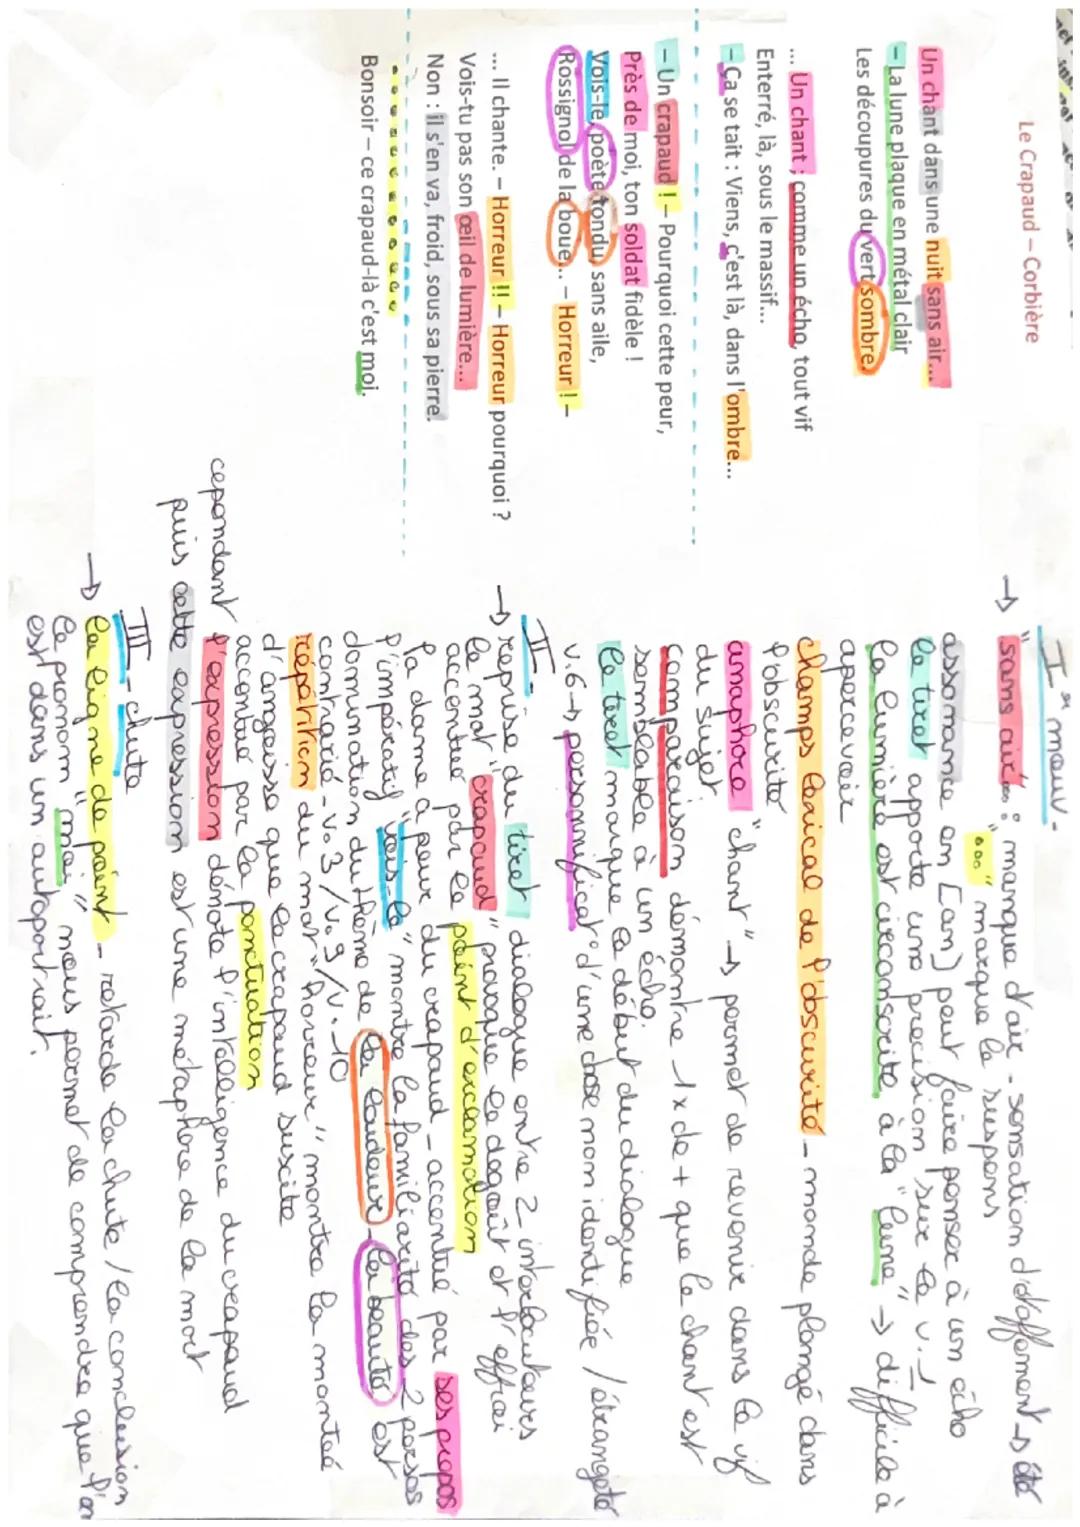 Le Crapaud – Corbière
Un chant dans une nuit sans air...
– La lune plaque en métal clair
Les découpures du vert sombre.
... Un chant ; comme un écho, tout vif
Enterré, là, sous le massif...
– Ça se tait : Viens, c'est là, dans l'ombre...
– Un crapaud ! – Pourquoi cette peur,
Près de moi, ton soldat fidèle !
Vois-le, poète tondu, sans aile,
Rossignol de la boue... – Horreur ! –
... Il chante. – Horreur !! – Horreur pourquoi ?
Vois-tu pas son œil de lumière...
Non : il s'en va, froid, sous sa pierre.
Bonsoir – ce crapaud-là c'est moi.
I mouv.
→ "sans air" : manque d'air - sensation d'étouffement → été
"..." marque le suspens
assonance en [an] peut faire penser à un écho
le tiret apporte une precision sur le v.1
la lumière est circonscrite à la "lune" → difficile à
apercevoir
champs lexical de l'obscurité - monde plongé dans
l'obscurité
anaphore "chant" → permet de revenir dans le vif
du sujet
comparaison démontre 1x de + que le chant est
semblable à un écho.
le tiret marque le début du dialogue
v.6 → personnificat° d'une chose non identifiée / étrangeté
II-
→ reprise du tiret dialogue entre 2 interlocuteurs
le mot "crapaud" provoque le dégoût et l'effroi
accentué par le point d'exclamation
la dame a peur du crapaud - accentué par ses propos
l'impératif "vois-le" montre la familiarité des 2 persos
domination du thème de la laideur - la beauté est
contrarié - v.3 / v.9 / v.10
répétition du mot "horreur" montre la montée
d'angoisse que le crapaud suscite
accentué par la ponctuation
cependant l'expression dénote l'intelligence du crapaud
puis cette expression est une métaphore de la mort
III - chute
→ la ligne de point - retarde la chute / la conclusion
le pronom "moi" nous permet de comprendre que l'on
est dans un autoportrait.